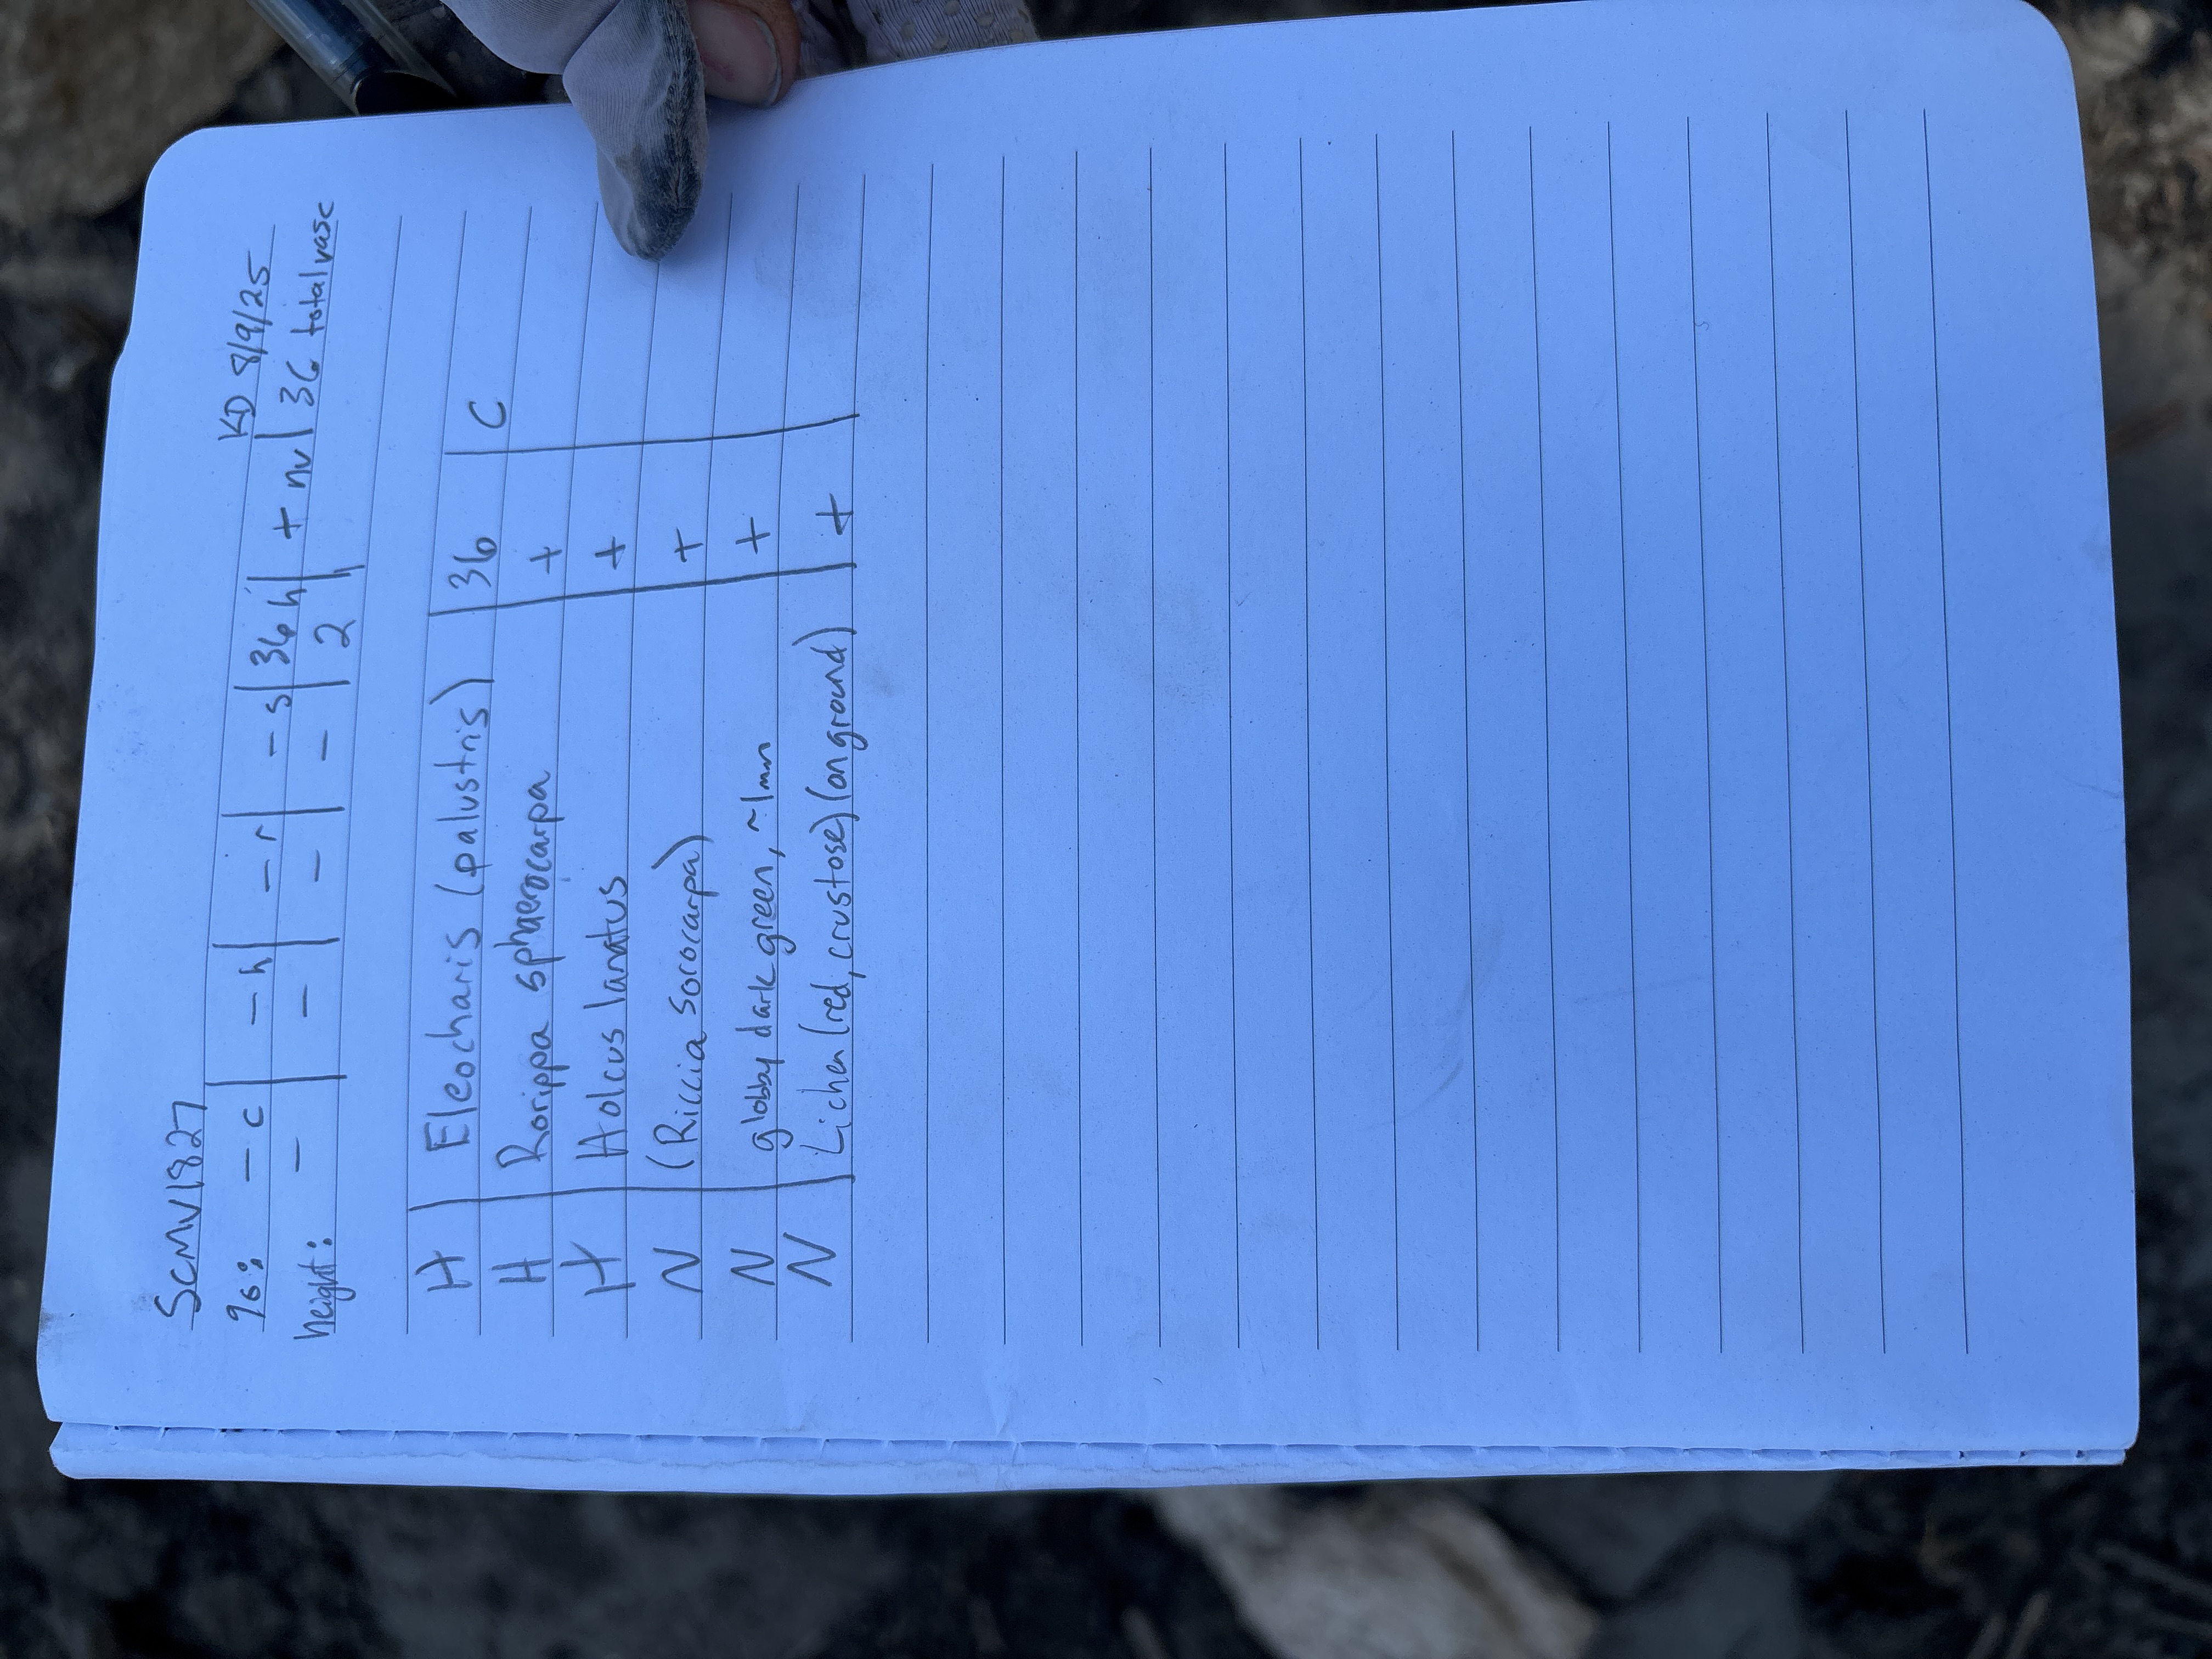 SCMV1827
KD 8/9/25
%: - c | - h | - r | - s | 36 h | + nv | 36 total vasc
height: - | - | - | - | 2 |
H | Eleocharis (palustris) | 36 | C
H | Rorippa sphaerocarpa | + |
H | Holcus lanatus | + |
N | (Riccia sorocarpa) | + |
N | globby dark green, ~1mm | + |
N | Lichen (red, crustose) (on ground) | + |